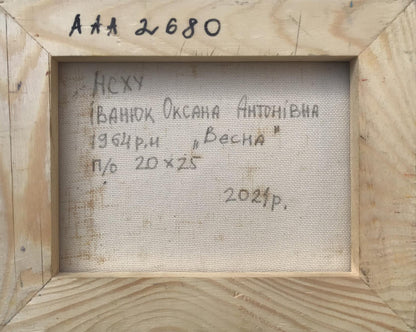 ААА 2680
НСХУ
Іванюк Оксана Антонівна
1964 р.н „Весна"
п/о 20×25
2021р.